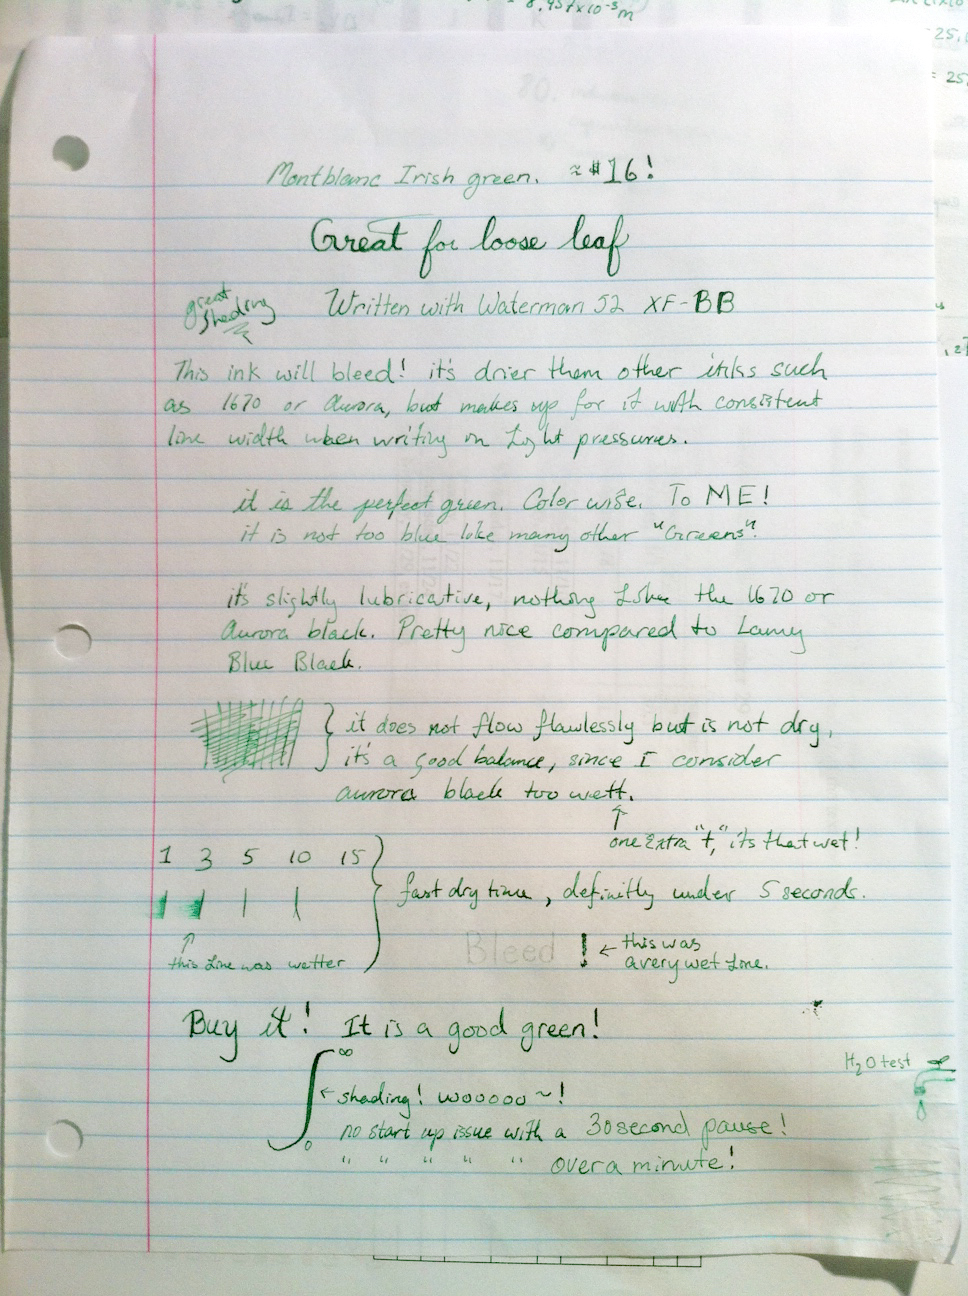 8.957x10⁻⁵m
= 25.
Montblanc Irish green. ≈ $16!
Great for loose leaf
great
shading
Written with Waterman 52 XF-BB
This ink will bleed! it's drier them other inks such
as 1670 or Aurora, but makes up for it with consistent
line width when writing on Light pressures.
it is the perfect green. Color wise. To ME!
it is not too blue like many other "Greens".
it's slightly lubricative, nothing Like the 1670 or
Aurora black. Pretty nice compared to Lamy
Blue Black.
} it does not flow flawlessly but is not dry,
it's a good balance, since I consider
aurora black too wett.
↑
one Extra "t," its that wet!
1 3 5 10 15
} fast dry time, definitly under 5 seconds.
↑
this Line was wetter
Bleed ! ← this was
a very wet Line.
Buy it! It is a good green!
H₂O test
∫ ∞
0
← shading! wooooo ~!
no start up issue with a 30 second pause!
" " " " " over a minute!